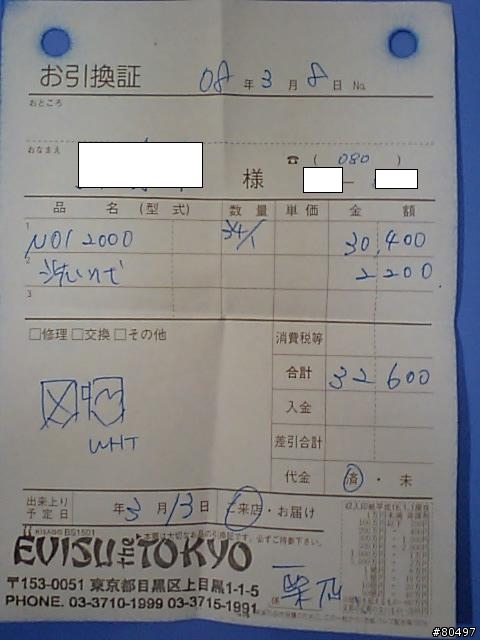 お引換証 08年3月8日 No.
おところ
おなまえ 様 ☎ ( 080 ) —
品名(型式) 数量 単価 金額
1 NO1 2000 34/1 30,400
2 2200
3
□修理 □交換 □その他 消費税等
合計 32600
WHT
入金
差引合計
代金 済・未
出来上り予定日 年3月13日 ご来店・お届け
KISAGO BS1501
EVISU the TOKYO
〒153-0051 東京都目黒区上目黒1-1-5
PHONE. 03-3710-1999 03-3715-1991
係
#80497